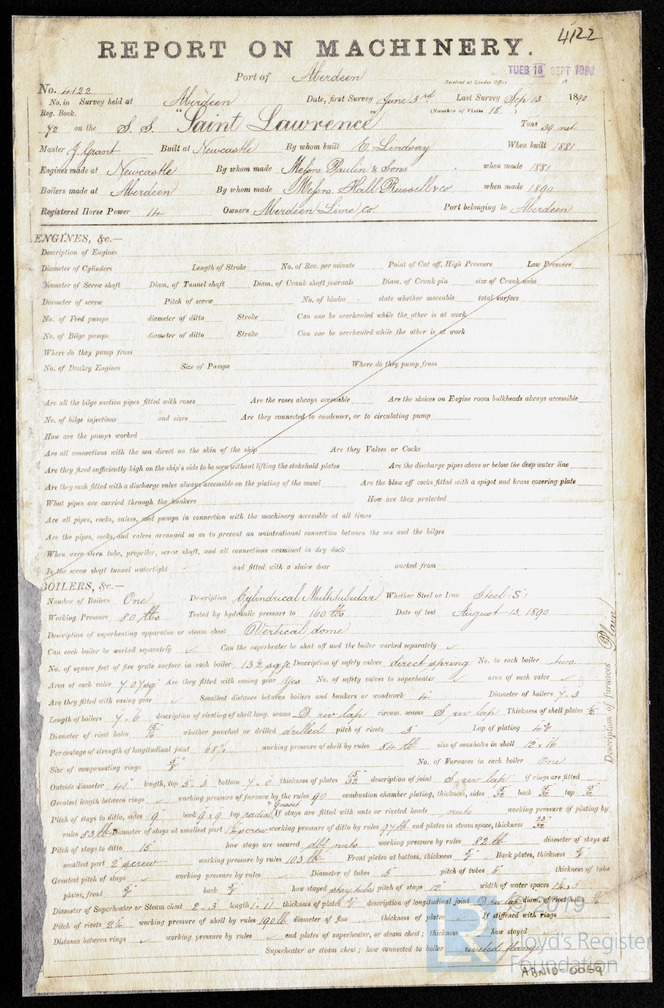 4122
REPORT ON MACHINERY.
Port of Aberdeen
Received at London Office
TUES 16 SEPT 1890
No. 4122
No. in Survey held at Aberdeen Date, first Survey June 3rd Last Survey Sep 13 1890
Reg. Book. (Number of Visits 18)
72 on the S.S. "Saint Lawrence" Tons 39 net
Master J. Grant Built at Newcastle By whom built E. Lindsay When built 1881
Engines made at Newcastle By whom made Messrs. Paulin & Sons when made 1881
Boilers made at Aberdeen By whom made Messrs. Hall Russell & co when made 1890
Registered Horse Power 14 Owners Aberdeen Lime Co. Port belonging to Aberdeen
ENGINES, &c.—
Description of Engines
Diameter of Cylinders Length of Stroke No. of Rev. per minute Point of Cut off, High Pressure Low Pressure
Diameter of Screw shaft Diam. of Tunnel shaft Diam. of Crank shaft journals Diam. of Crank pin size of Crank webs
Diameter of screw Pitch of screw No. of blades state whether moveable total surface
No. of Feed pumps diameter of ditto Stroke Can one be overhauled while the other is at work
No. of Bilge pumps diameter of ditto Stroke Can one be overhauled while the other is at work
Where do they pump from
No. of Donkey Engines Size of Pumps Where do they pump from
Are all the bilge suction pipes fitted with roses Are the roses always accessible Are the sluices on Engine room bulkheads always accessible
No. of bilge injections and sizes Are they connected to condenser, or to circulating pump
How are the pumps worked
Are all connections with the sea direct on the skin of the ship Are they Valves or Cocks
Are they fixed sufficiently high on the ship's side to be seen without lifting the stokehold plates Are the discharge pipes above or below the deep water line
Are they each fitted with a discharge valve always accessible on the plating of the vessel Are the blow off cocks fitted with a spigot and brass covering plate
What pipes are carried through the bunkers How are they protected
Are all pipes, cocks, valves, and pumps in connection with the machinery accessible at all times
Are the pipes, cocks, and valves arranged so as to prevent an unintentional connection between the sea and the bilges
When were stern tube, propeller, screw shaft, and all connections examined in dry dock
Is the screw shaft tunnel watertight and fitted with a sluice door worked from
BOILERS, &c.—
Number of Boilers One Description Cylindrical Multitubular Whether Steel or Iron Steel S
Working Pressure 80 lbs Tested by hydraulic pressure to 160 lbs Date of test August 13, 1890
Description of superheating apparatus or steam chest Vertical dome
Can each boiler be worked separately Can the superheater be shut off and the boiler worked separately
No. of square feet of fire grate surface in each boiler 13½ sq ft Description of safety valves direct spring No. to each boiler two
Area of each valve 7.07 sq" Are they fitted with easing gear Yes No. of safety valves to superheater area of each valve
Are they fitted with easing gear Smallest distance between boilers and bunkers or woodwork Diameter of boilers 7.3
Length of boilers 7.6 description of riveting of shell long. seams D riv lap circum. seams S riv lap Thickness of shell plates
Diameter of rivet holes whether punched or drilled drilled pitch of rivets Lap of plating
Percentage of strength of longitudinal joint working pressure of shell by rules size of manholes in shell 12 x 16
Size of compensating rings No. of Furnaces in each boiler One
Description of furnaces Plain
Outside diameter length, top 5.3 bottom 7.0 thickness of plates description of joint S riv lap if rings are fitted
Greatest length between rings working pressure of furnace by the rules 90 combustion chamber plating, thickness, sides back top
Pitch of stays to ditto, sides 9" back 9 x 9 top If stays are fitted with nuts or riveted heads nuts working pressure of plating by
rules 83 lb Diameter of stays at smallest part working pressure of ditto by rules end plates in steam space, thickness
Pitch of stays to ditto 15" how stays are secured dbl nuts working pressure by rules 82 lb diameter of stays at
smallest part 2" screw working pressure by rules 103 lb Front plates at bottom, thickness Back plates, thickness
Greatest pitch of stays working pressure by rules Diameter of tubes pitch of tubes thickness of tube
plates, front back how stayed stay tubes pitch of stays 12" width of water spaces
Diameter of Superheater or Steam chest 2.3 length 1.11 thickness of plates description of longitudinal joint D riv lap diam. of rivet holes
Pitch of rivets working pressure of shell by rules 190 lb diameter of flue thickness of plates If stiffened with rings
Distance between rings working pressure by rules end plates of superheater, or steam chest; thickness how stayed
Superheater or steam chest; how connected to boiler riveted flange
© 2019
LR
Lloyd's Register
Foundation
ABN10-0059